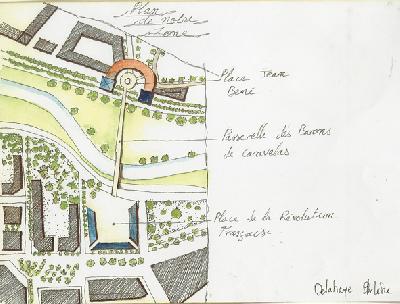 Plan
de notre
zone
Place Jean
Bene
Passerelle des Barons
de Caravelas
Place de la Révolution
Française